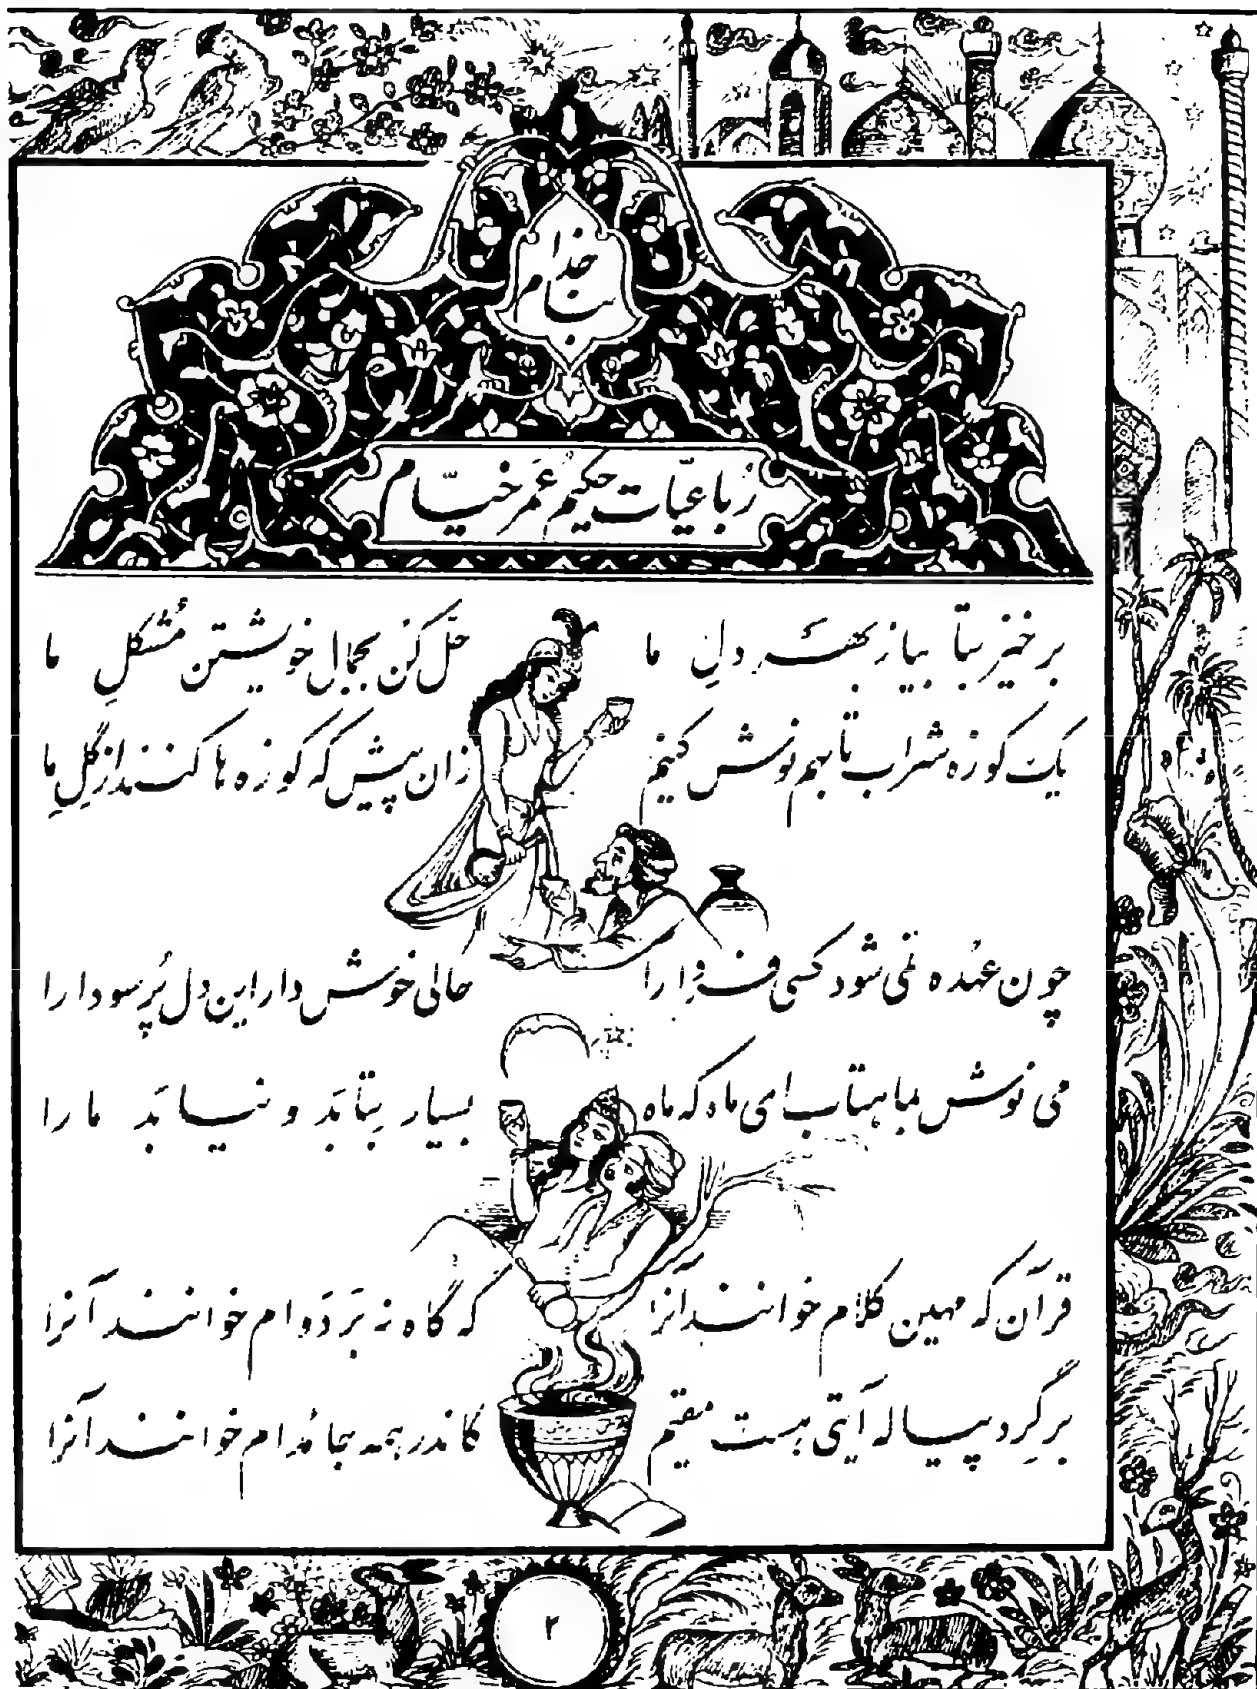 بنام خدا
رُباعیّات حکیم عُمَر خیّام
برخیز بتا بیاز بهر دلِ ما حلّ کن بجمال خویشتن مُشکلِ ما
یک کوزه شراب تا بهم نوش کنیم زان پیش که کوزه ها کنند از گِلِ ما
چون عهده نمی شود کسی فردا را حالی خوش دار این دل پُر سودا را
می نوش بماهتاب ای ماه که ماه بسیار بتابَد و نیابَد ما را
قرآن که مهین کلام خوانند آنرا که گاه نه بَر دَوام خوانند آنرا
بر گِردِ پیاله آیتی هست مقیم کاندر همه جا مُدام خوانند آنرا
۲